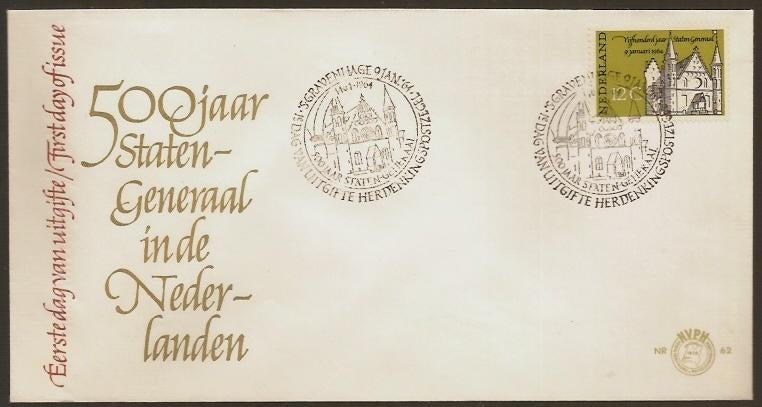 Eerste dag van uitgifte / First day of issue
500 jaar
Staten-
Generaal
in de
Neder-
landen
'S-GRAVENHAGE 9 JAN. '64
1e DAG VAN UITGIFTE HERDENKINGSPOSTZEGEL
1464-1964
500 JAAR STATEN-GENERAAL
Vijfhonderd jaar Staten Generaal
9 januari 1964
NEDERLAND
12 C
'S-GRAVENHAGE 9 JAN.
1e DAG VAN UITGIFTE HERDENKINGSPOSTZEGEL
500 JAAR STATEN-GENERAAL
NVPH
NR 62